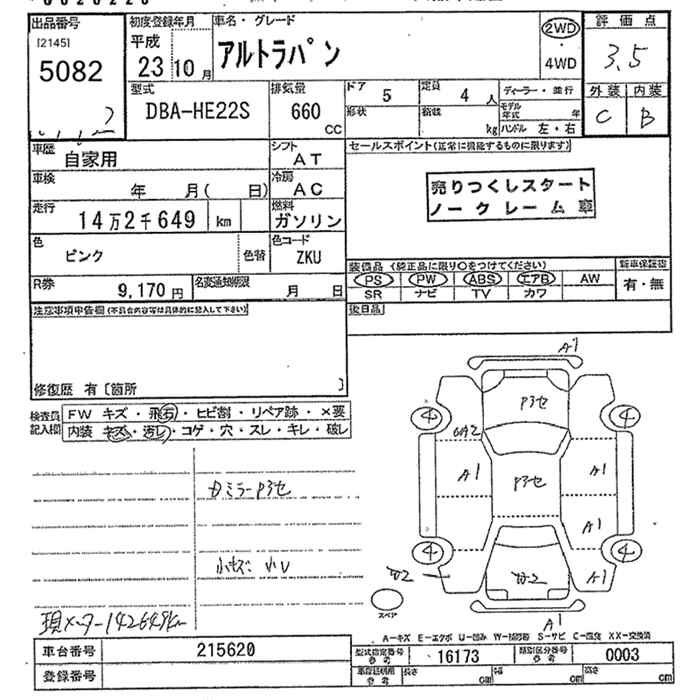 出品番号
[2145]
5082
初度登録年月
平成
23 10月
車名・グレード
アルトラパン
2WD
・
4WD
評価点
3.5
外装 内装
C B
型式
DBA-HE22S
排気量
660
CC
ドア 5
定員 4 人
形状
積載 kg
ディーラー・並行
モデル年式 年
ハンドル 左・右
車歴 自家用
シフト AT
セールスポイント(正常に機能するものに限ります)
車検 年 月( 日)
冷房 AC
売りつくしスタート
ノークレーム車
走行 14万2千649 km
燃料 ガソリン
色 ピンク 色替
色コード ZKU
装備品 (純正品に限り○をつけてください)
新車保証書
PS PW ABS エアB AW
有・無
SR ナビ TV カワ
R券 9,170円
名変通知期限 月 日
後日品
注意事項申告欄(不具合内容等は具体的に記入して下さい)
修復歴 有〔箇所 〕
検査員記入欄
FW キズ・飛石・ヒビ割・リペア跡・×要
内装 キズ・汚し・コゲ・穴・スレ・キレ・破し
A1
4
4
A1
A1
A1
4
4
A1
A1
スペア
現メーター142649km
A-キズ E-エクボ U-凹み S-サビ C-腐食 XX-交換済
車台番号 215620
型式指定番号 参考 16173
類別区分番号 参考 0003
登録番号
参考 長さ cm 幅 cm 高さ cm